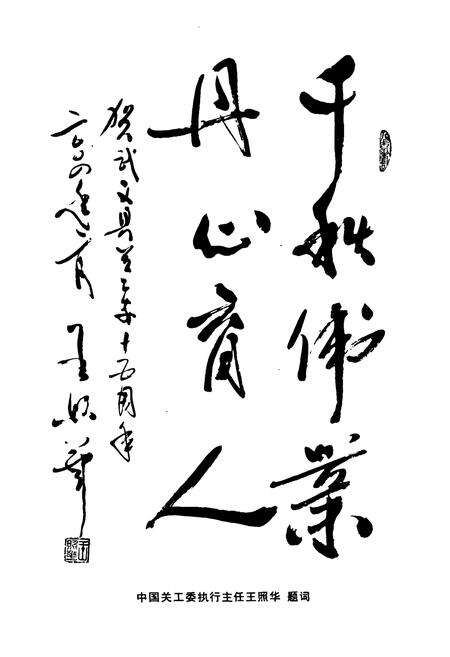 千秋伟業
丹心育人
贺武文具关工委十五周年
二〇〇四年六月 王照华
中国关工委执行主任王照华 题词